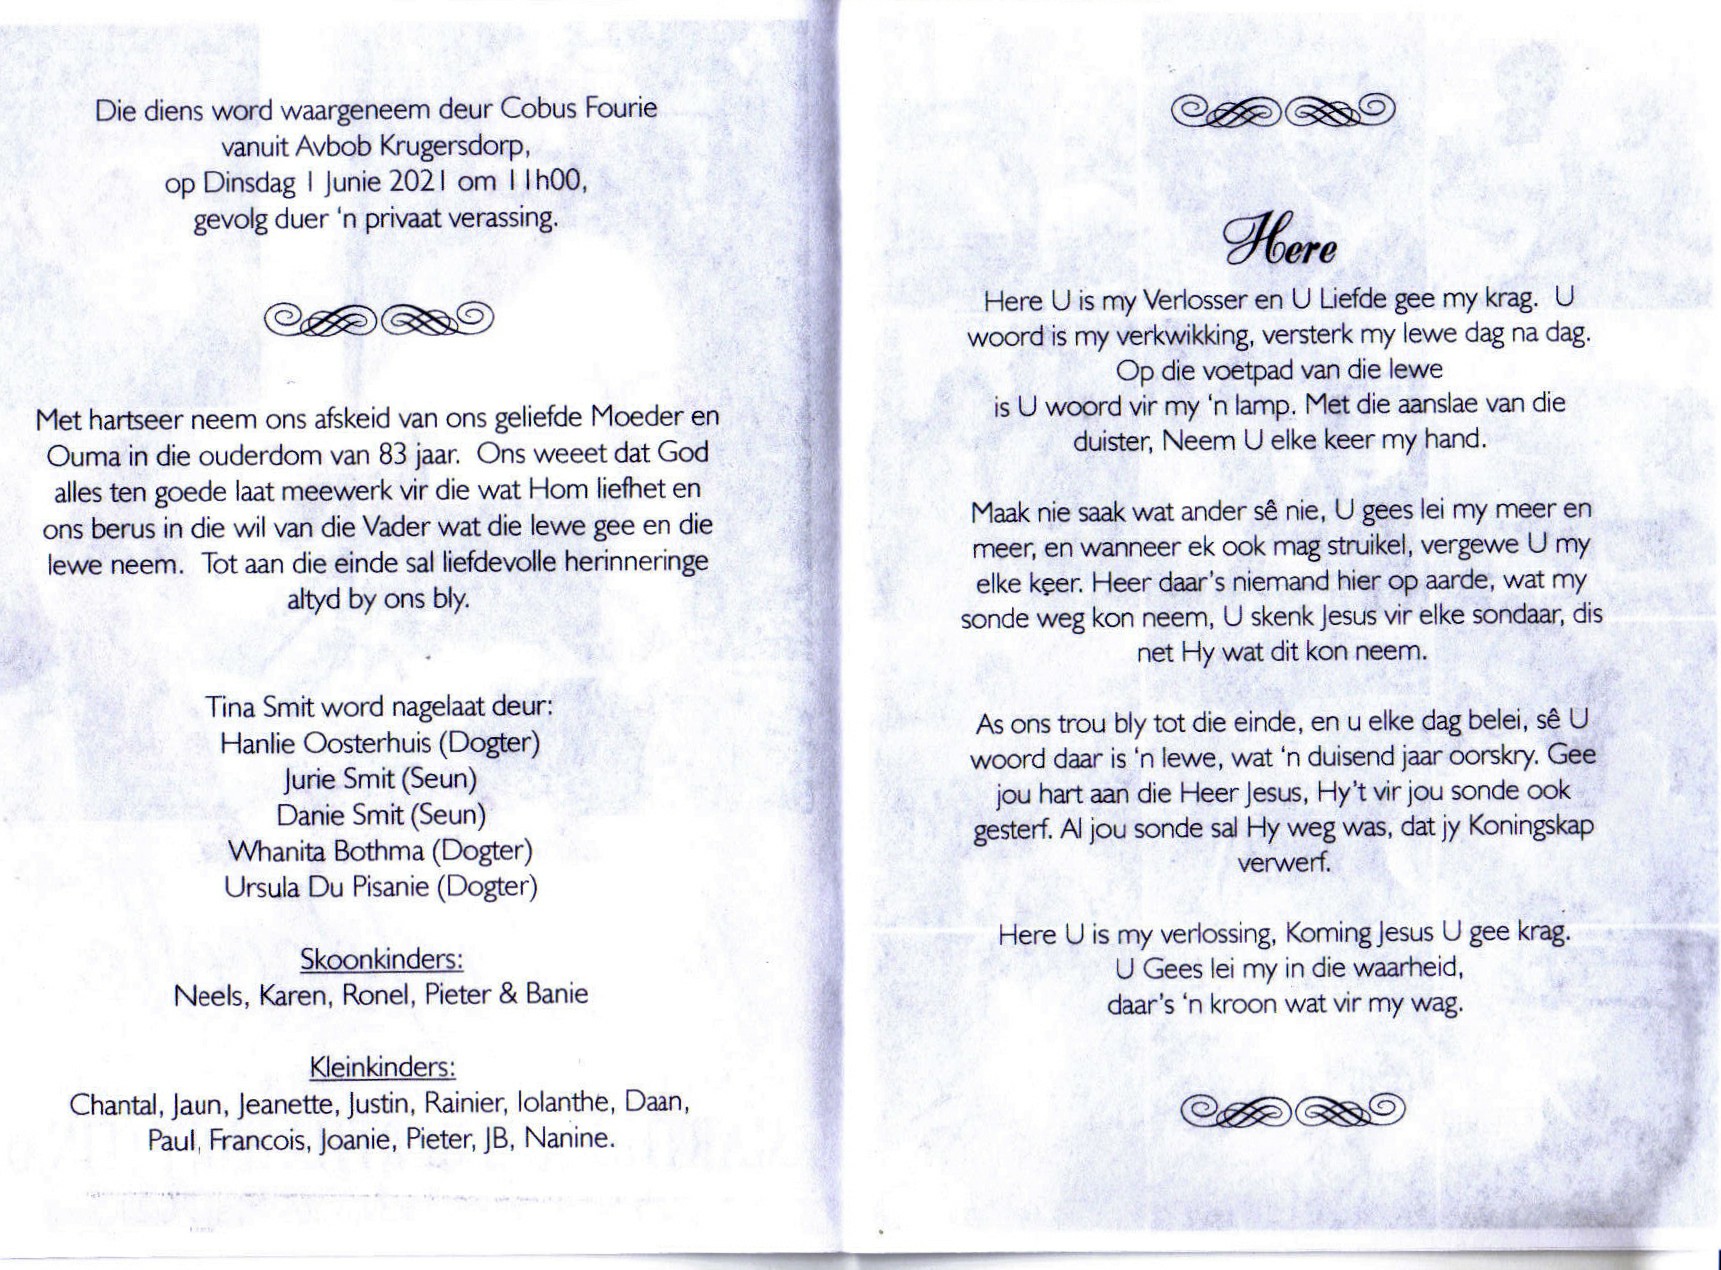 Die diens word waargeneem deur Cobus Fourie
vanuit Avbob Krugersdorp,
op Dinsdag 1 Junie 2021 om 11h00,
gevolg duer 'n privaat verassing.
Met hartseer neem ons afskeid van ons geliefde Moeder en
Ouma in die ouderdom van 83 jaar. Ons weeet dat God
alles ten goede laat meewerk vir die wat Hom liefhet en
ons berus in die wil van die Vader wat die lewe gee en die
lewe neem. Tot aan die einde sal liefdevolle herinneringe
altyd by ons bly.
Tina Smit word nagelaat deur:
Hanlie Oosterhuis (Dogter)
Jurie Smit (Seun)
Danie Smit (Seun)
Whanita Bothma (Dogter)
Ursula Du Pisanie (Dogter)
Skoonkinders:
Neels, Karen, Ronel, Pieter & Banie
Kleinkinders:
Chantal, Jaun, Jeanette, Justin, Rainier, Iolanthe, Daan,
Paul, Francois, Joanie, Pieter, JB, Nanine.
Here
Here U is my Verlosser en U Liefde gee my krag. U
woord is my verkwikking, versterk my lewe dag na dag.
Op die voetpad van die lewe
is U woord vir my 'n lamp. Met die aanslae van die
duister, Neem U elke keer my hand.
Maak nie saak wat ander sê nie, U gees lei my meer en
meer, en wanneer ek ook mag struikel, vergewe U my
elke keer. Heer daar's niemand hier op aarde, wat my
sonde weg kon neem, U skenk Jesus vir elke sondaar, dis
net Hy wat dit kon neem.
As ons trou bly tot die einde, en u elke dag belei, sê U
woord daar is 'n lewe, wat 'n duisend jaar oorskry. Gee
jou hart aan die Heer Jesus, Hy't vir jou sonde ook
gesterf. Al jou sonde sal Hy weg was, dat jy Koningskap
verwerf.
Here U is my verlossing, Koming Jesus U gee krag.
U Gees lei my in die waarheid,
daar's 'n kroon wat vir my wag.